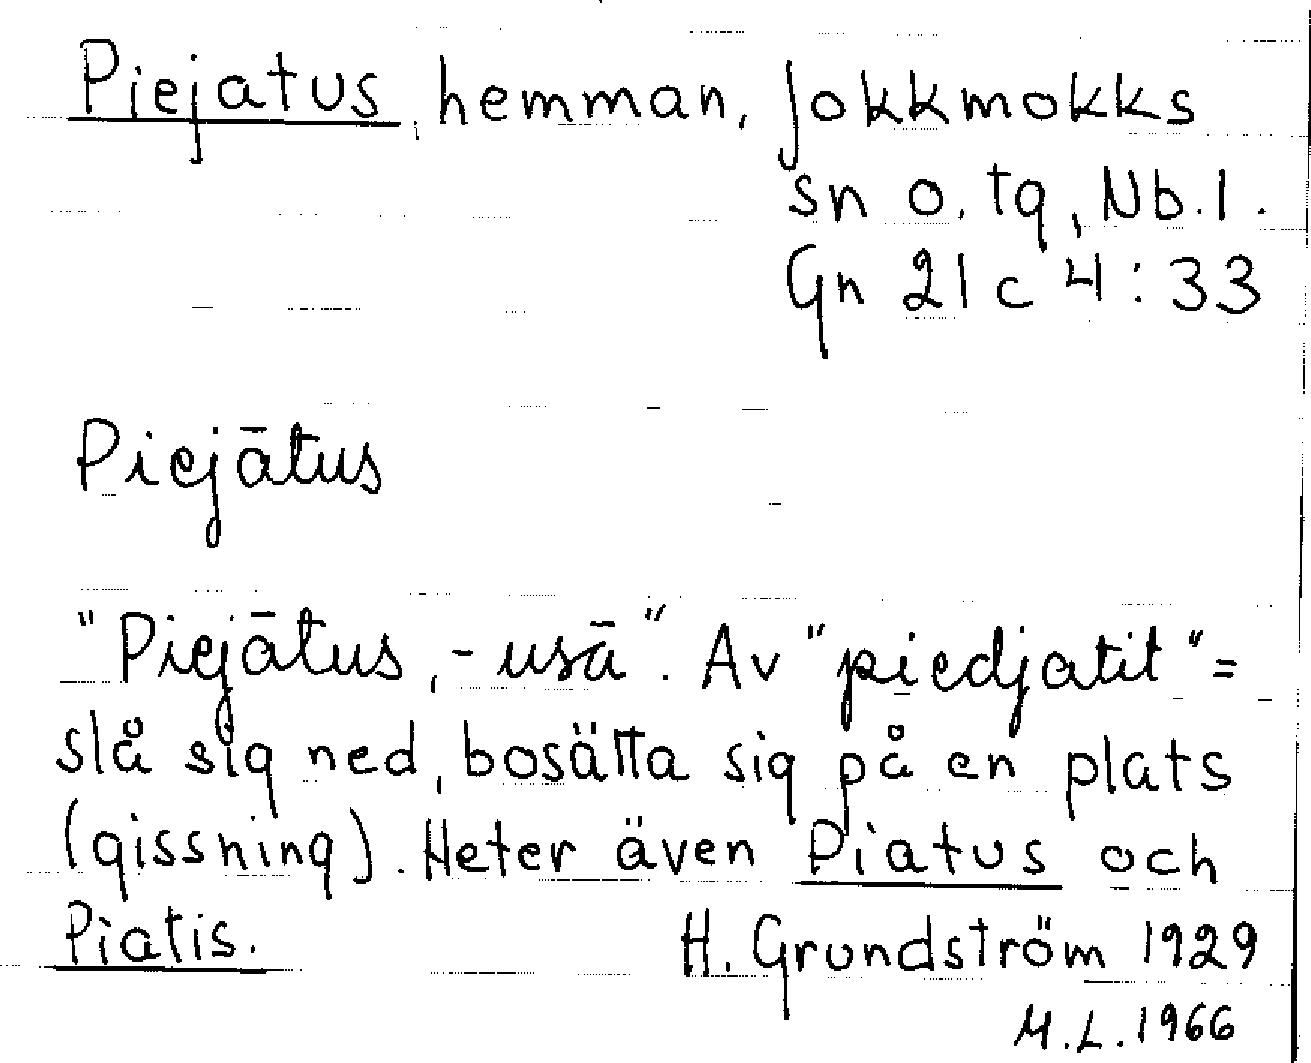 Piejatus, hemman, Jokkmokks
sn o. tg, Nb. l.
Gn 21 c 4:33
Piejātus
"Piejātus, -usā". Av "piedjatit" =
slå sig ned, bosätta sig på en plats
(gissning). Heter även Piatus och
Piatis.
H. Grundström 1929
M.L. 1966